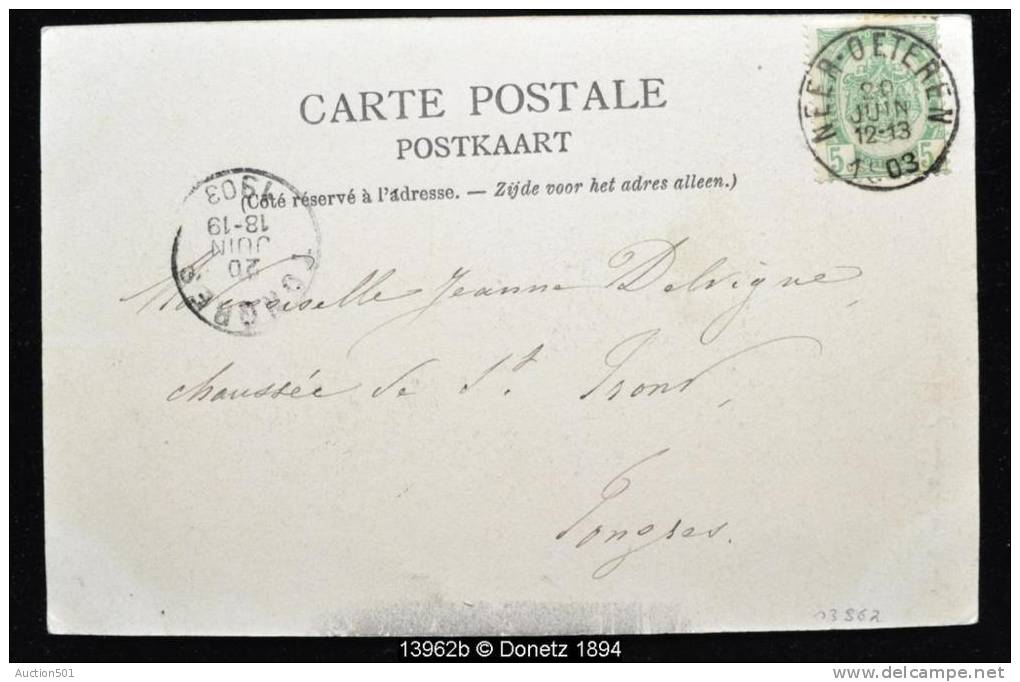 CARTE POSTALE
POSTKAART
(Côté réservé à l'adresse. — Zijde voor het adres alleen.)
NEER-OETEREN
20
JUIN
12-13
1903
5 5
TONGRES
20
JUIN
18-19
1903
Mademoiselle Jeanne Delvigne,
chaussée de St. Trond,
Tongres.
13962b © Donetz 1894
Auction501
www.delcampe.net